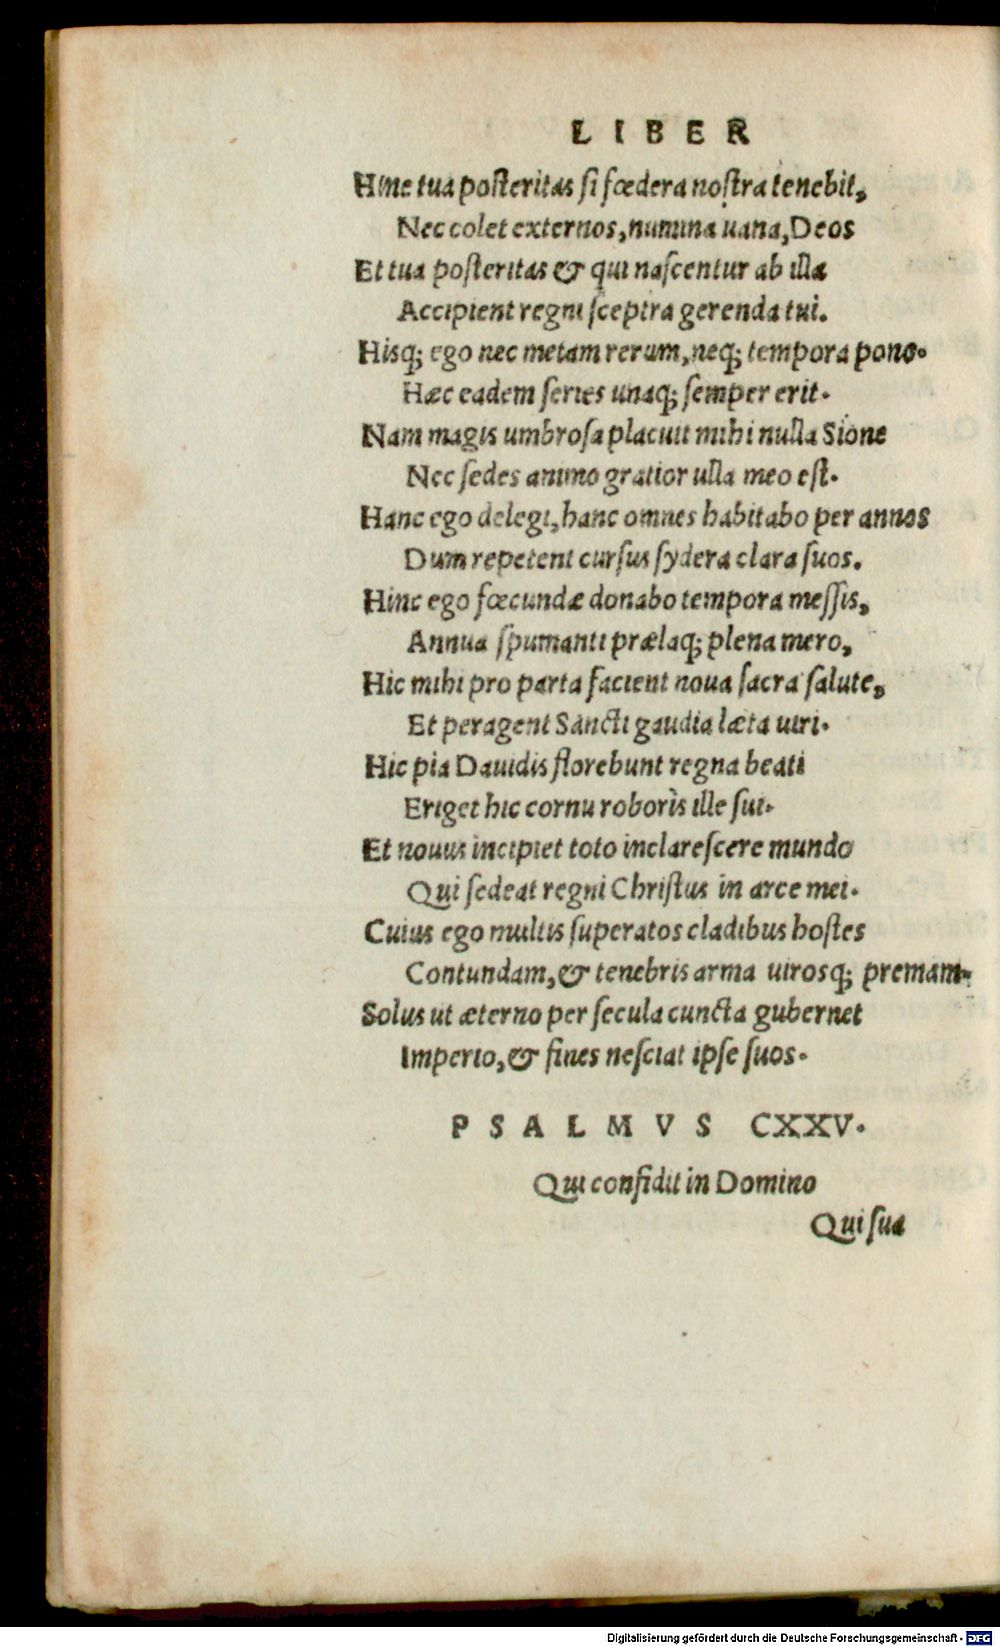 LIBER
Hinc tua posteritas si fœdera nostra tenebit,
Nec colet externos, numina uana, Deos
Et tua posteritas & qui nascentur ab illa
Accipient regni sceptra gerenda tui.
Hisq; ego nec metam rerum, neq; tempora pono.
Hæc eadem series unaq; semper erit.
Nam magis umbrosa placuit mihi nulla Sione
Nec sedes animo gratior ulla meo est.
Hanc ego delegi, hanc omnes habitabo per annos
Dum repetent cursus sydera clara suos.
Hinc ego fœcundæ donabo tempora messis,
Annua spumanti prælaq; plena mero,
Hic mihi pro parta facient noua sacra salute,
Et peragent Sancti gaudia læta uiri.
Hic pia Dauidis florebunt regna beati
Eriget hic cornu roboris ille sui.
Et nouus incipiet toto inclarescere mundo
Qui sedeat regni Christus in arce mei.
Cuius ego multis superatos cladibus hostes
Contundam, & tenebris arma uirosq; premam.
Solus ut æterno per secula cuncta gubernet
Imperio, & fines nesciat ipse suos.
PSALMVS CXXV.
Qui confidit in Domino
Qui sua
Digitalisierung gefördert durch die Deutsche Forschungsgemeinschaft - DFG